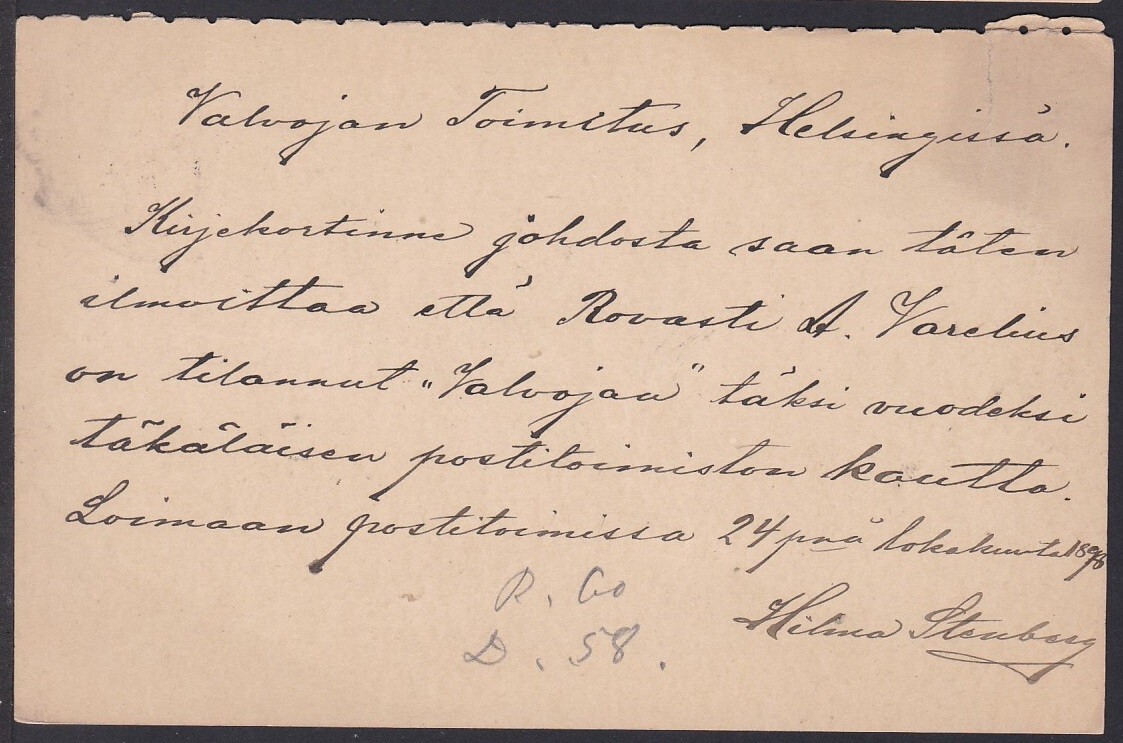 Valvojan Toimitus, Helsingissä.
Kirjekortinne johdosta saan täten
ilmoittaa että Rovasti A. Varelius
on tilannut „Valvojan" täksi vuodeksi
täkäläisen postitoimiston kautta.
Loimaan postitoimissa 24 pnä lokakuuta 1898
Hilma Stenberg
R. 60
D. 58.